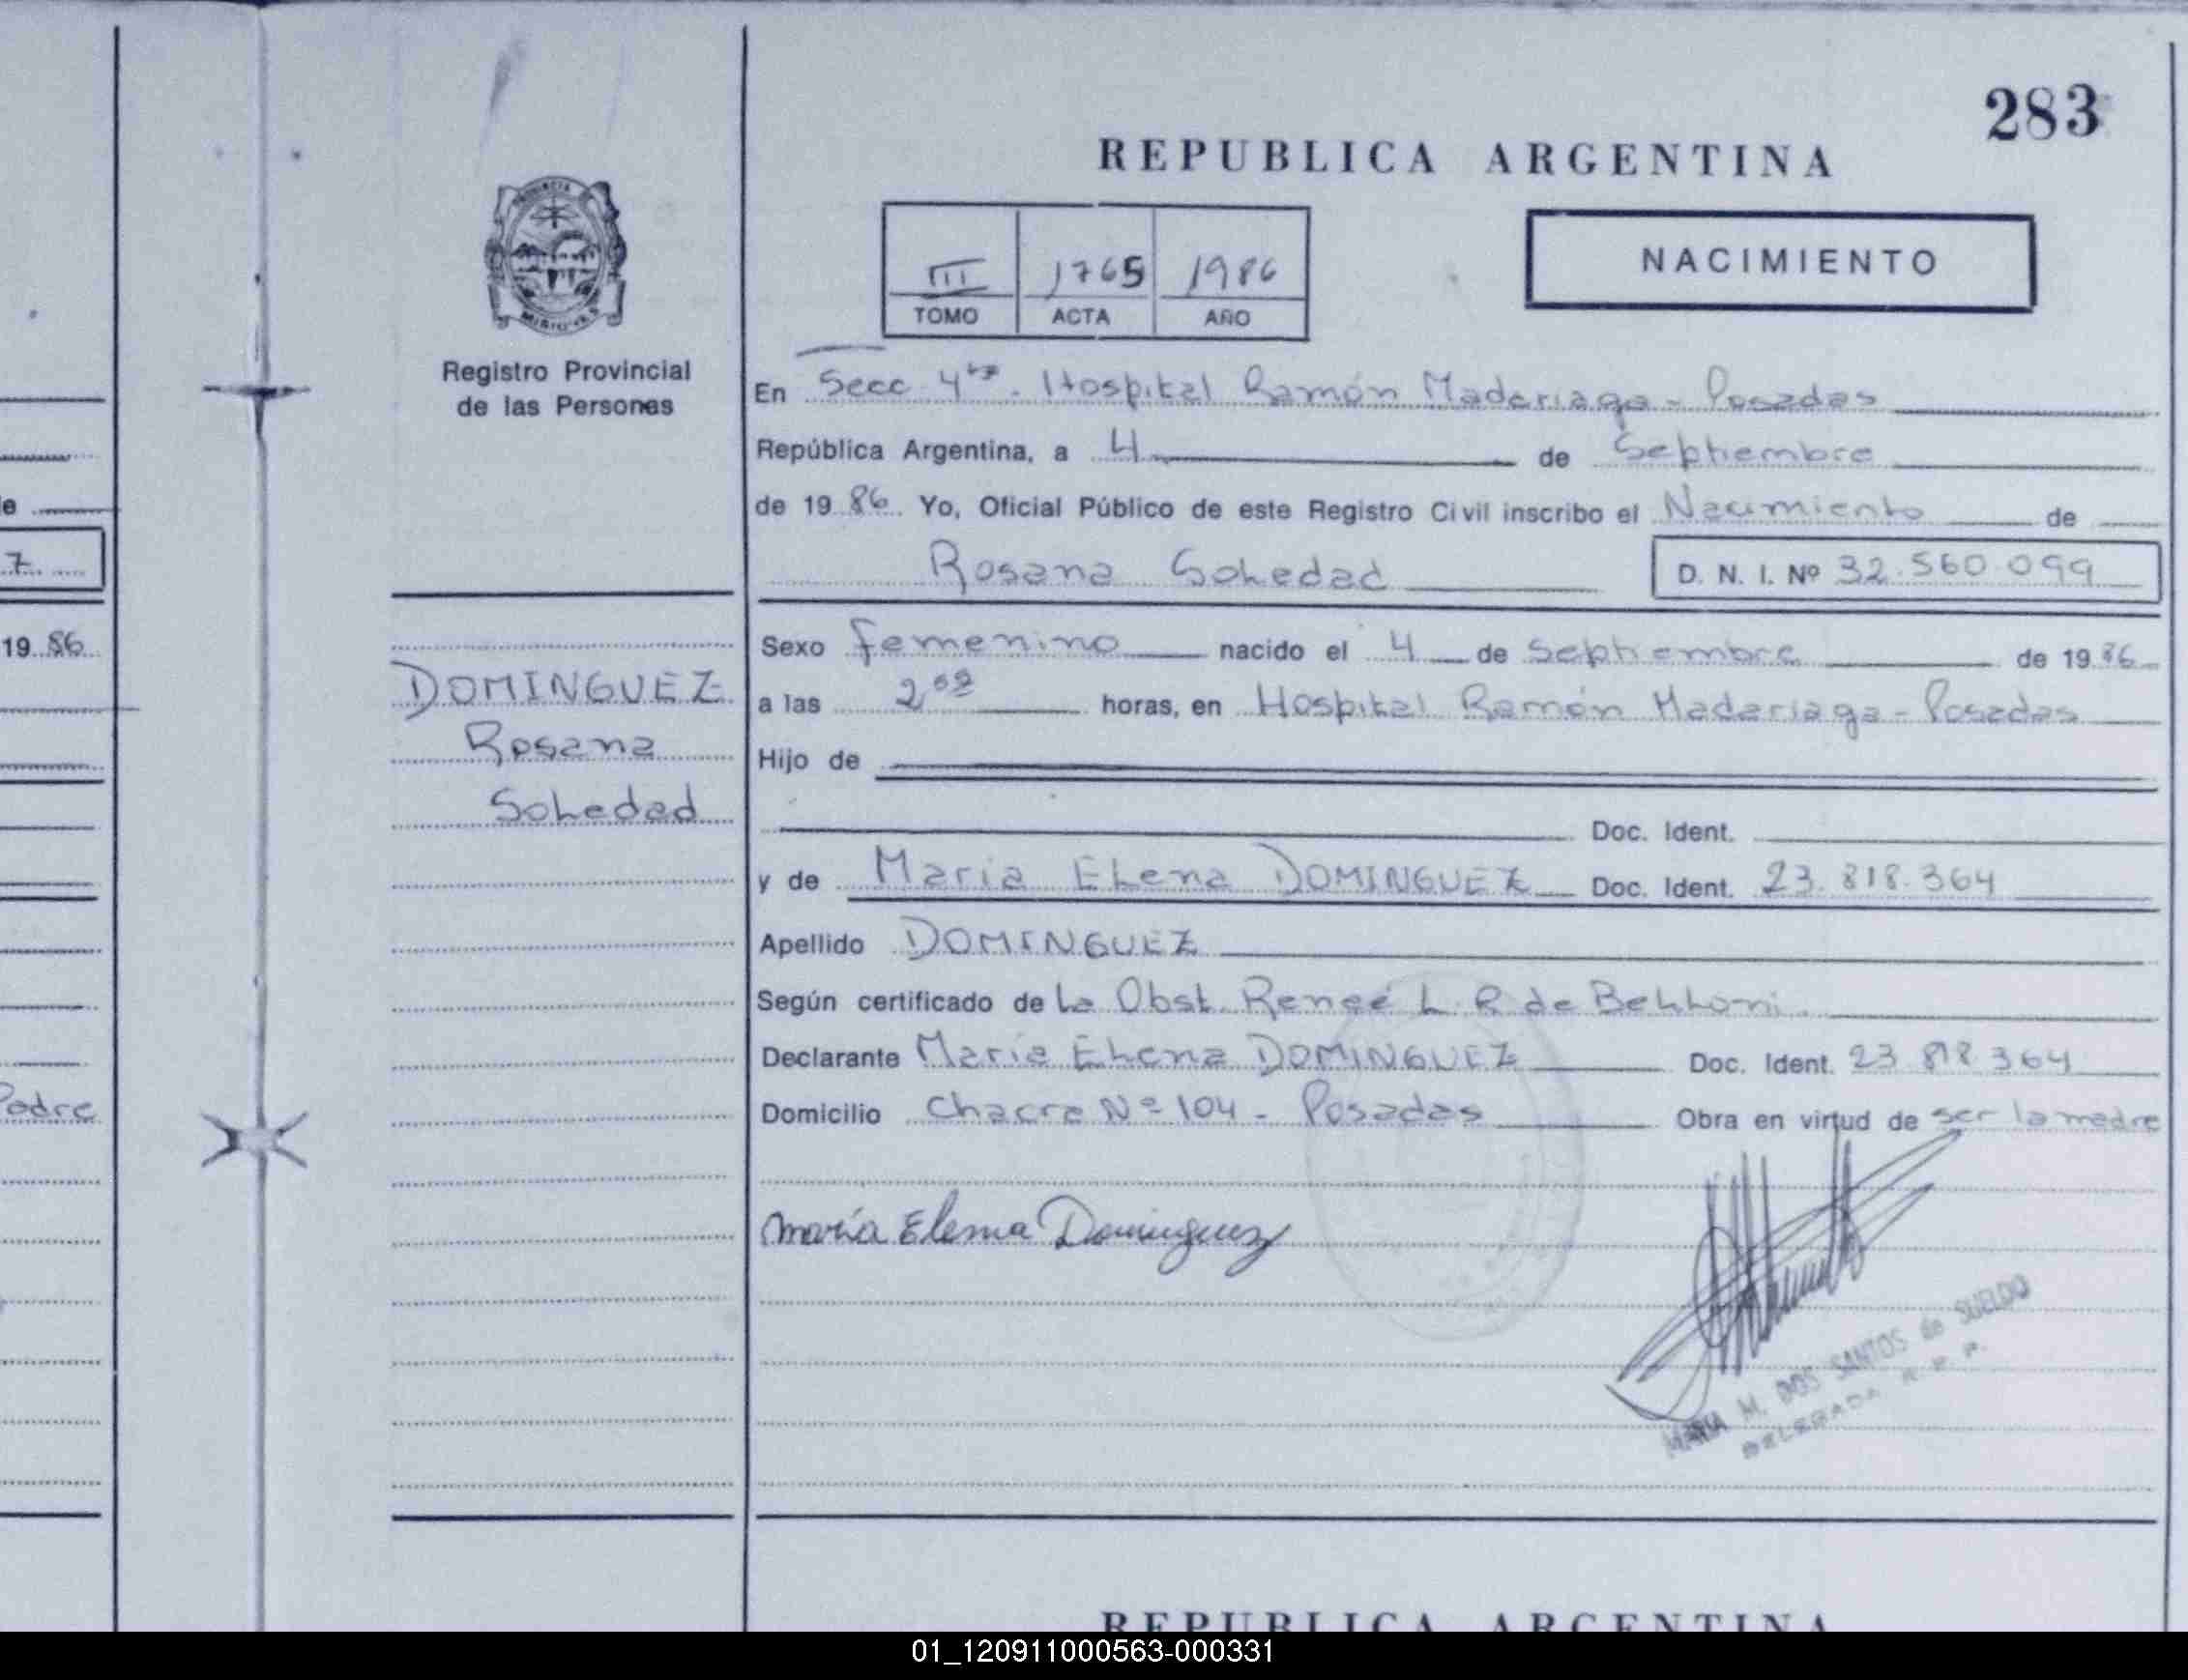 283
REPUBLICA ARGENTINA
NACIMIENTO
III 1765 1986
TOMO ACTA AÑO
PROVINCIA
MISIONES
Registro Provincial
de las Personas
En Secc 4ta - Hospital Ramón Madariaga - Posadas
República Argentina, a 4 de Septiembre
de 1986. Yo, Oficial Público de este Registro Civil inscribo el Nacimiento de
Rosana Soledad D. N. I. Nº 32.560.099
DOMINGUEZ
Rosana
Soledad
Sexo femenino nacido el 4 de Septiembre de 1986
a las 2 horas, en Hospital Ramón Madariaga - Posadas
Hijo de
Doc. Ident.
y de María Elena DOMINGUEZ Doc. Ident. 23.818.364
Apellido DOMINGUEZ
Según certificado de la Obst. Reneé L. R de Belloni.
Declarante María Elena DOMINGUEZ Doc. Ident. 23 818 364
Domicilio Chacra Nº 104 - Posadas Obra en virtud de ser la madre
María Elena Dominguez
MARIA M. DOS SANTOS de SUELDO
DELEGADA R. P. P.
e
7
19 86
Padre
REPUBLICA ARGENTINA
01_120911000563-000331